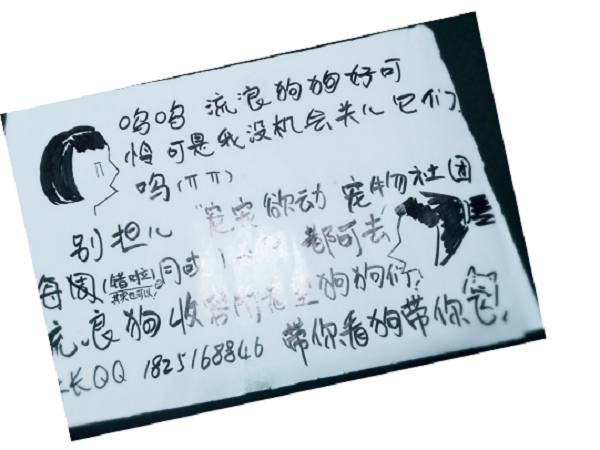 呜呜 流浪狗狗好可
怜 可是我没机会关心它们
呜(ㄒㄒ)
别担心 "宠宠欲动 宠物社团
每周(错啦! 其实也可以) 周 都可去
流浪狗收容所 狗狗们!
长QQ 1825168846 带你看狗带你飞!